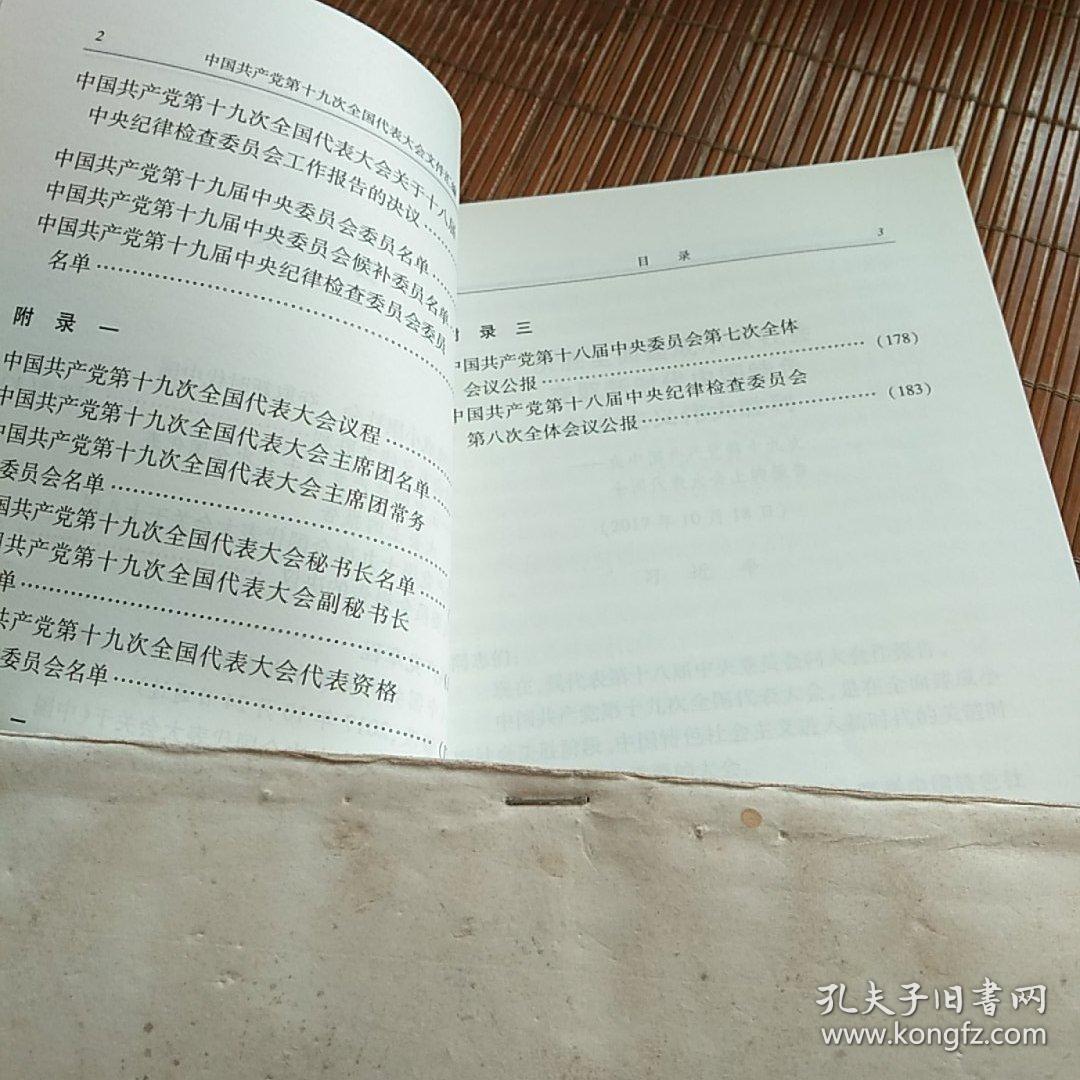 2
中国共产党第十九次全国代表大会文件汇编
中国共产党第十九次全国代表大会关于十八届
中央纪律检查委员会工作报告的决议……
中国共产党第十九届中央委员会委员名单……
中国共产党第十九届中央委员会候补委员名单
中国共产党第十九届中央纪律检查委员会委员
名单……
附 录 一
中国共产党第十九次全国代表大会议程……
中国共产党第十九次全国代表大会主席团名单……
中国共产党第十九次全国代表大会主席团常务
委员会名单……
国共产党第十九次全国代表大会秘书长名单……
共产党第十九次全国代表大会副秘书长
单……
共产党第十九次全国代表大会代表资格
委员会名单……
目 录
3
录 三
中国共产党第十八届中央委员会第七次全体
会议公报……(178)
中国共产党第十八届中央纪律检查委员会
第八次全体会议公报……(183)
孔夫子旧書网
www.kongfz.com